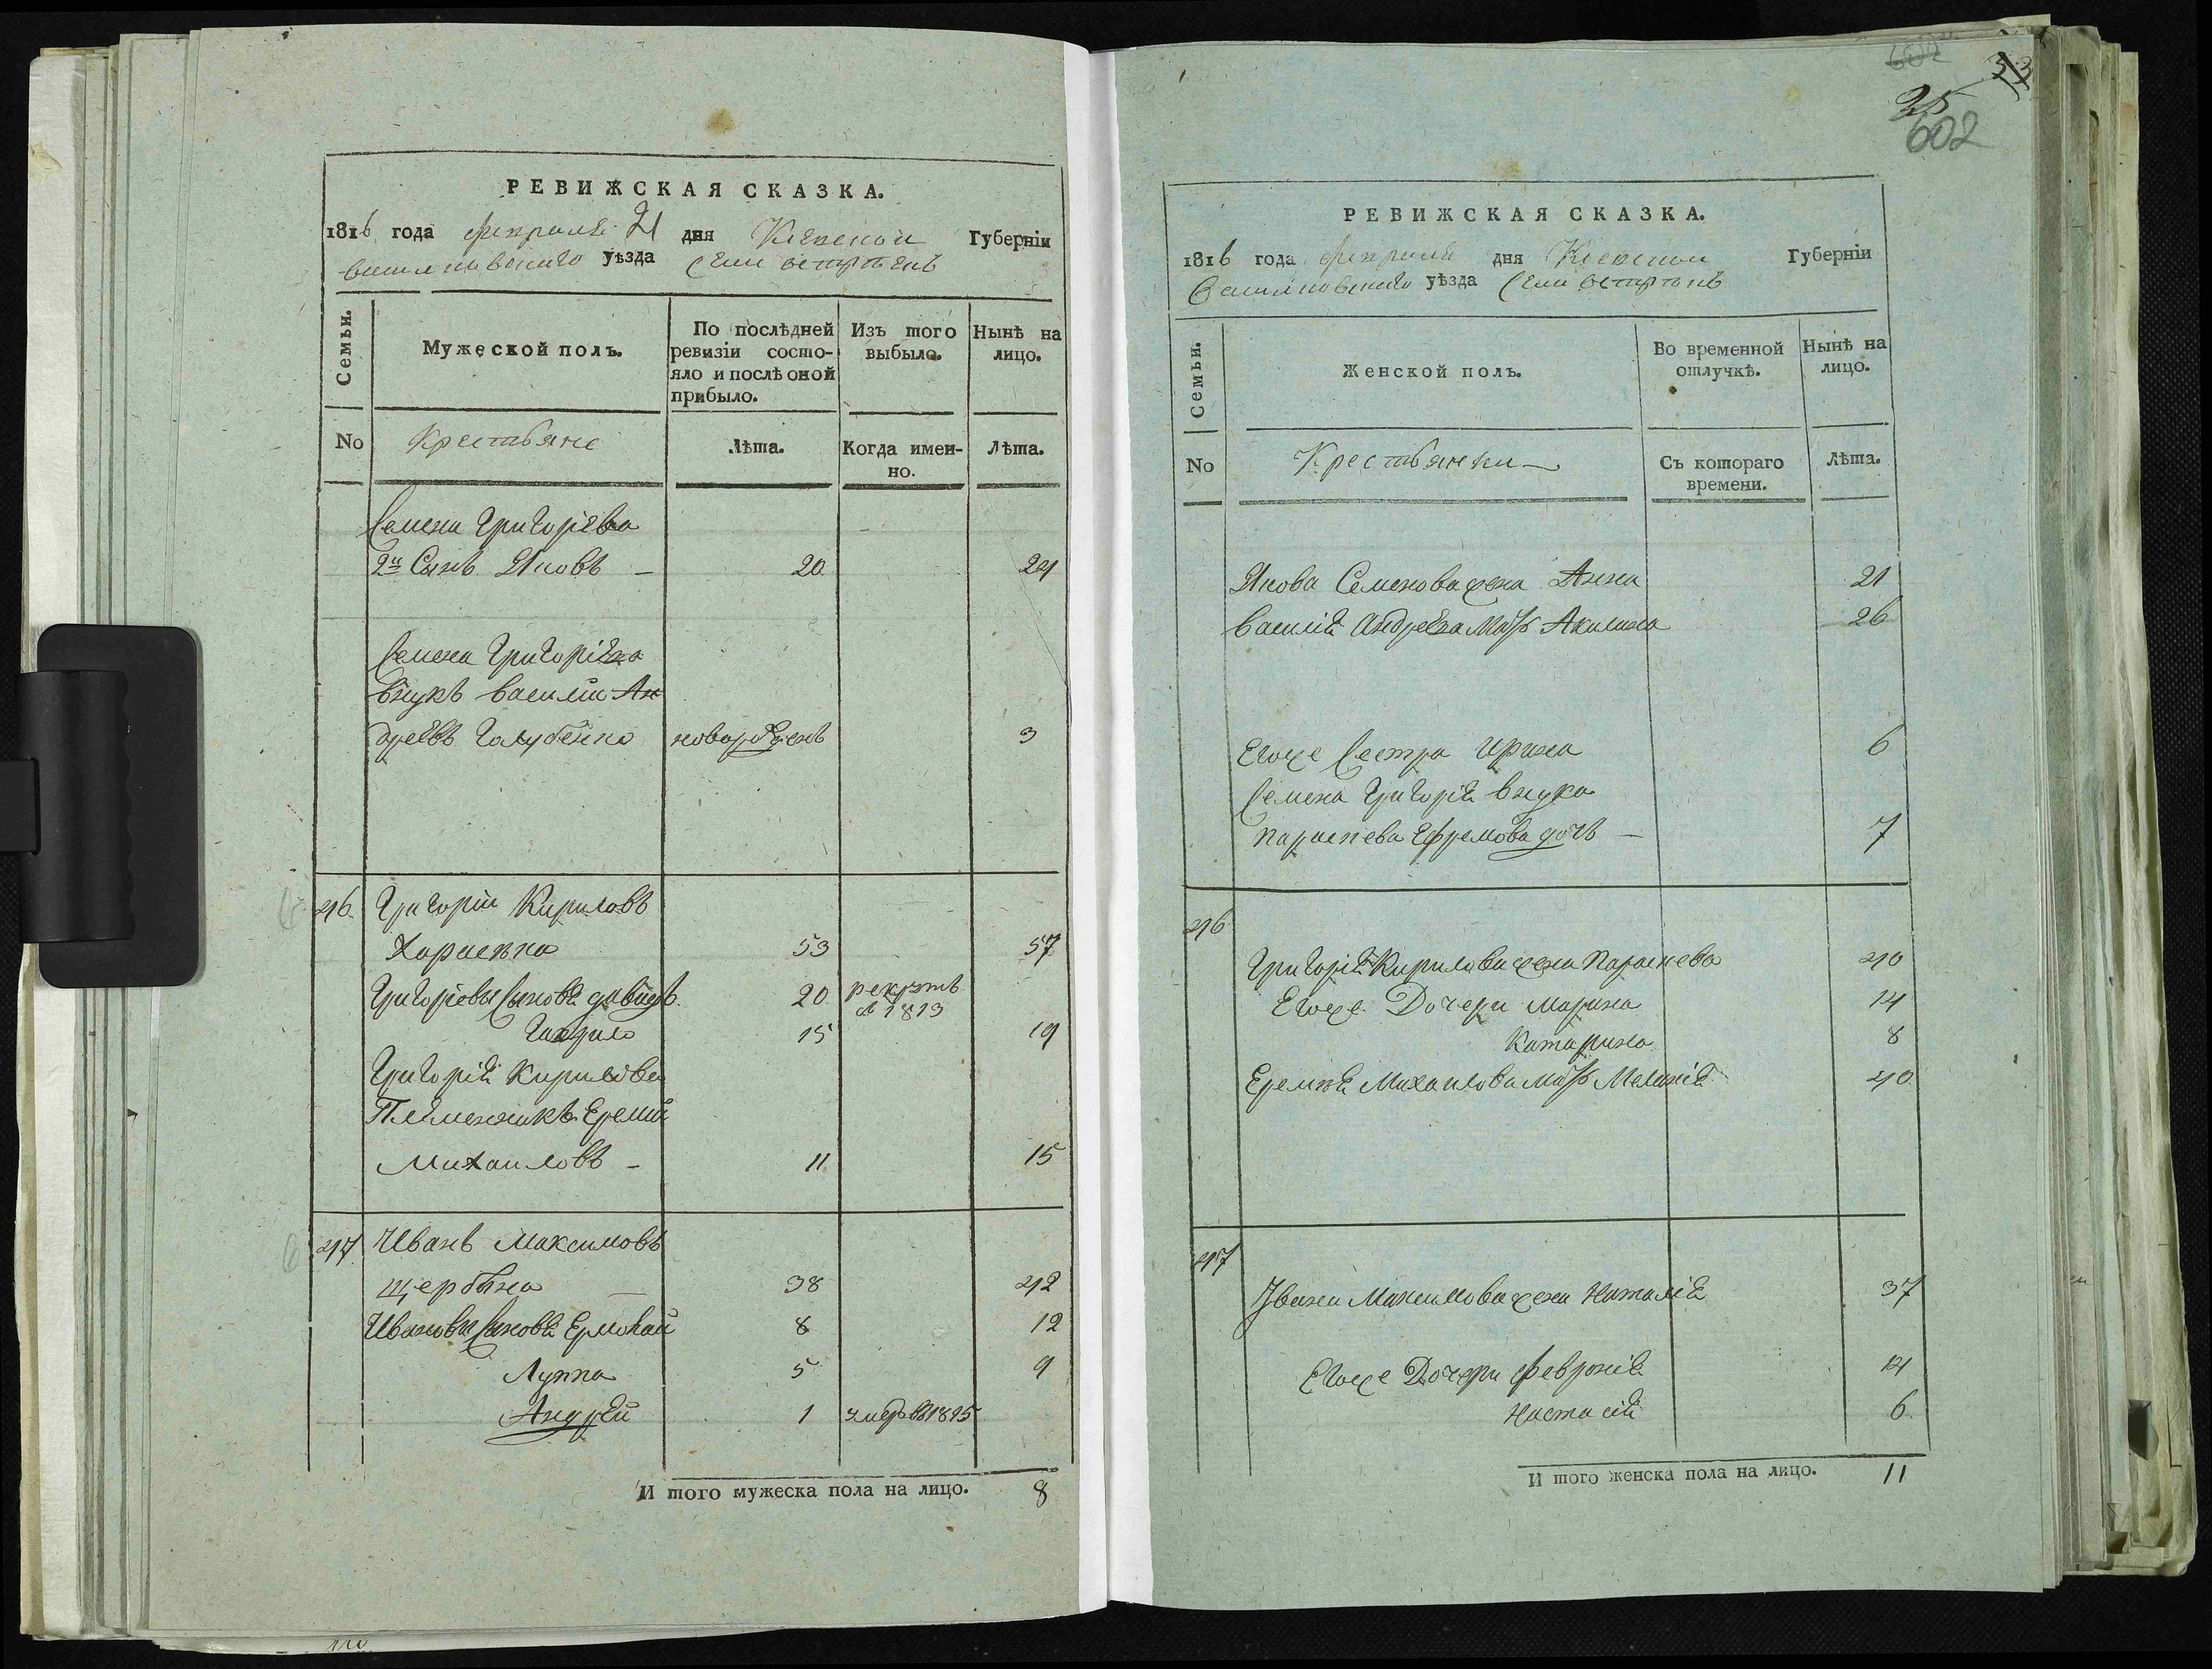 РЕВИЖСКАЯ СКАЗКА.
1816 года февраля 21 дня Киевской Губерніи
Васильковскаго уѣзда Села
Семьи.
Мужеской полъ.
По послѣдней ревизіи состо-
яло и послѣ оной
прибыло.
Изъ того
выбыло.
Нынѣ на
лицо.
No
Крестьяне
Лѣта.
Когда имен-
но.
Лѣта.
Семена Григорьева
2й Сынъ Яковъ – 20 24
Семена Григорьева
внукъ Василий Ан
дреевъ Голубенко новорожденъ 3
46. Григорій Кириловъ
53 57
Григорьевы Сыновѣ Давыдъ 20 рекрутъ
в 1813
Гаврило 15 19
Григорій Кирилова
Племенникъ Еремѣй
Михаиловъ – 11 15
47 Иванъ Максимовъ
Щербина 38 42
Ивановы Сыновѣ Ермолай 8 12
Луппа 5 9
Андрѣй 1 умеръ въ 1815
И того мужеска пола на лицо. 8
602
33
25
602
РЕВИЖСКАЯ СКАЗКА.
1816 года февраля дня Киевской Губерніи
Васильковскаго уѣзда Села
Семьи.
Женской полъ.
Во временной
отлучкѣ.
Нынѣ на
лицо.
No
Крестьянки
Съ котораго
времени.
Лѣта.
Якова Семенова жена Анна 21
Василія Андреева Мать Акилина 26
Егоже Сестра Ирина 6
Семена Григорія внука
Параскева Ефремова дочь – 7
46
Григорія Кирилова жена Параскева 40
Егоже Дочери Марина 14
Катарина 8
Еремѣя Михаилова Мать Меланія 40
47
Ивана Максимова жена Наталія 37
Егоже Дочери Февронія 14
Настасія 6
И того женска пола на лицо. 11